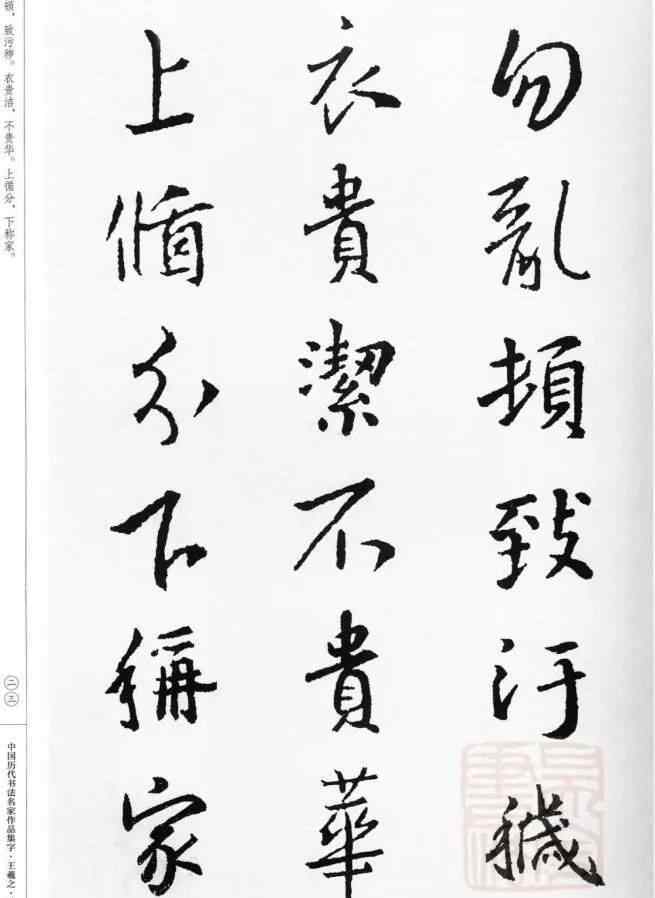 勿亂頓致汙穢
衣貴潔不貴華
上循分下稱家
顿，致污秽。衣贵洁，不贵华。上循分，下称家。
二三
中国历代书法名家作品集字·王羲之·